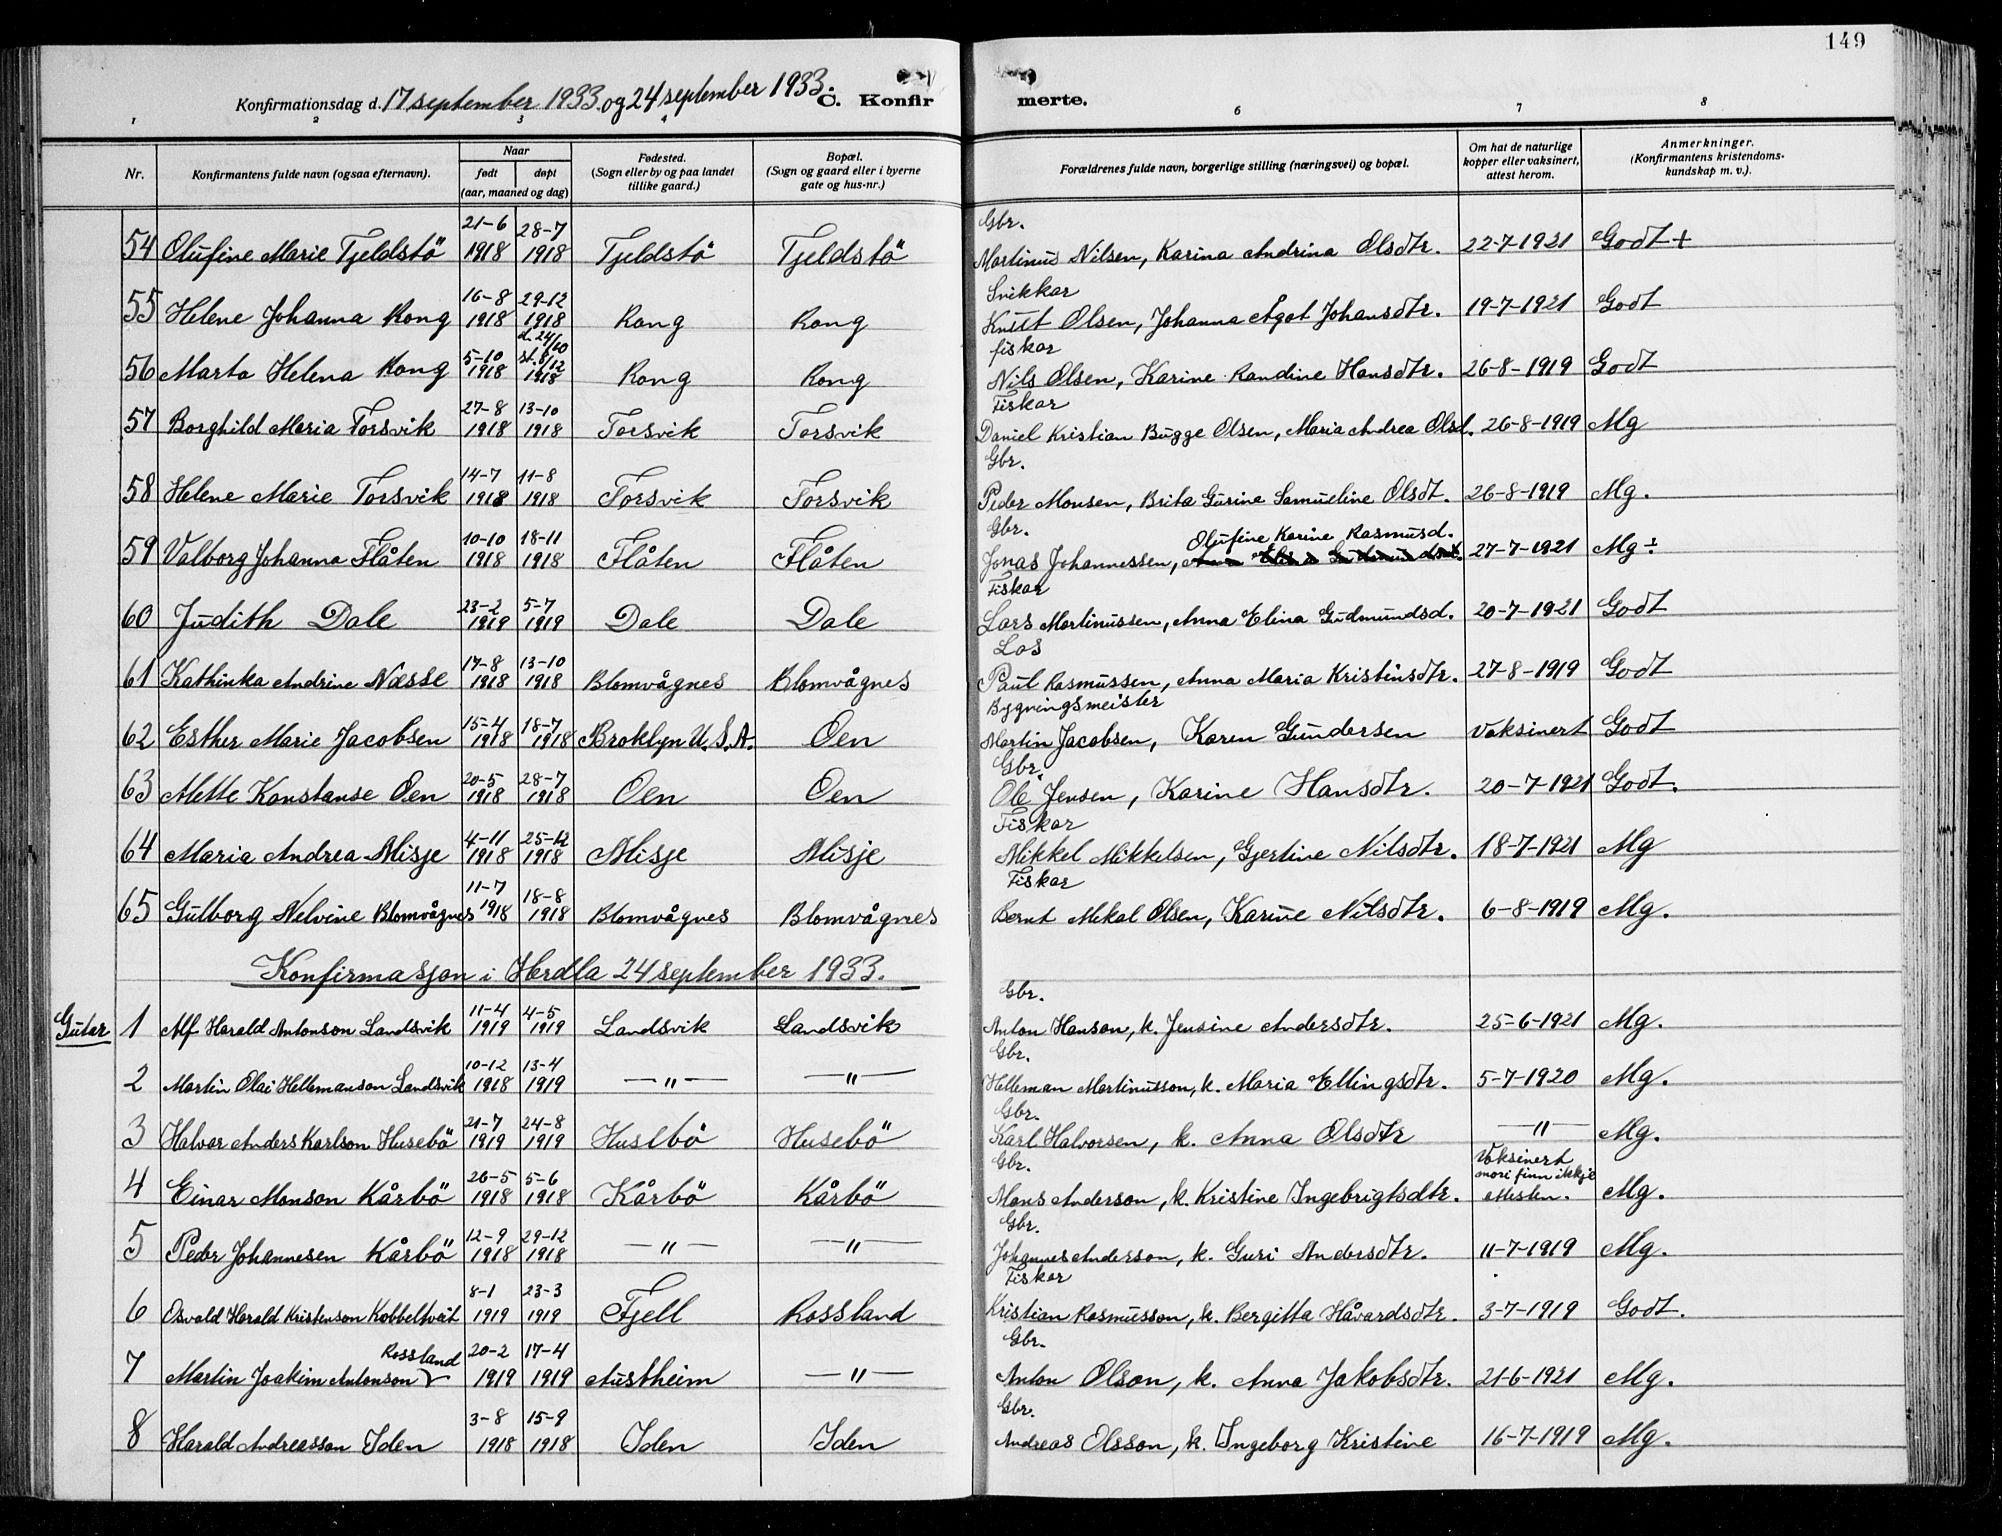 149
Konfirmationsdag d. 17 september 1933. og 24 september 1933. C. Konfirmerte.
1 2 3 4 6 7 8
Nr. Konfirmantens fulde navn (ogsaa efternavn). Naar født døpt (aar, maaned og dag) Fødested. (Sogn eller by og paa landet tillike gaard.) Bopæl. (Sogn og gaard eller i byerne gate og hus-nr.) Forældrenes fulde navn, borgerlige stilling (næringsvei) og bopæl. Om hat de naturlige kopper eller vaksinert, attest herom. Anmerkninger. (Konfirmantens kristendoms-kundskap m. v.).
54 Olufine Marie Tjeldstö 21-6 1918 28-7 1918 Tjeldstö Tjeldstö Gbr. Martinus Nilsen, Karina Andrina Olsdtr. 22-7-1921 Godt +
55 Helene Johanna Rong 16-8 1918 29-12 1918 Rong Rong Snikkar Knut Olsen, Johanna Agot Johansdtr. 19-7-1921 Godt
56 Marta Helena Rong 5-10 1918 d. 24/10 st. 8/12 1918 Rong Rong fiskar Nils Olsen, Karine Randine Hansdtr. 26-8-1919 Godt
57 Borghild Maria Torsvik 27-8 1918 13-10 1918 Torsvik Torsvik Fiskar Daniel Kristian Bugge Olsen, Maria Andrea Olsd. 26-8-1919 Mg
58 Helene Marie Torsvik 14-7 1918 11-8 1918 Torsvik Torsvik Gbr. Peder Monsen, Brita Gurine Samueline Olsdt. 26-8-1919 Mg.
59 Valborg Johanna Flåten 10-10 1918 18-11 1918 Flåten Flåten Gbr. Jonas Johannessen, Olufine Karine Rasmusd. 27-7-1921 Mg ÷
60 Judith Dale 23-2 1919 5-7 1919 Dale Dale Fiskar Lars Martinussen, Anna Elina Gudmundsd. 20-7-1921 Godt
61 Kathinka Andrine Næsse 17-8 1918 13-10 1918 Blomvågnes Blomvågnes Los Paul Rasmussen, Anna Maria Kristinsdtr. 27-8-1919 Godt
62 Esther Marie Jacobsen 15-4 1918 18-7 1918 Broklyn U.S.A. Oen Bygningsmeister Martin Jacobsen, Karen Gundersen Vaksinert Godt
63 Mette Konstanse Oen 20-5 1918 28-7 1918 Oen Oen Gbr. Ole Jensen, Karine Hansdtr. 20-7-1921 Godt.
64 Maria Andrea Misje 4-11 1918 25-12 1918 Misje Misje Fiskar Mikkel Mikkelsen, Gjertine Nilsdtr. 18-7-1921 Mg
65 Gulborg Nelvine Blomvågnes 11-7 1918 18-8 1918 Blomvågnes Blomvågnes Fiskar Bernt Mikal Olsen, Karine Nilsdtr. 6-8-1919 Mg.
Konfirmasjon i Herdla 24 september 1933.
Gutar 1 Alf Harald Antonson Landsvik 11-4 1919 4-5 1919 Landsvik Landsvik Gbr. Anton Hanson, k. Jensine Andersdtr. 25-6-1921 Mg.
2 Martin Olai Hellemanson Landsvik 10-12 1918 13-4 1919 —"— —"— Gbr. Helleman Martinusson, k. Maria Ellingsdtr. 5-7-1920 Mg.
3 Halvor Anders Karlson Husebö 21-7 1919 24-8 1919 Husebö Husebö Gbr. Karl Halvorsen, k. Anna Olsdtr —"— Mg.
4 Einar Monson Kårbö 26-5 1918 5-6 1918 Kårbö Kårbö Gbr. Mons Anderson, k. Kristine Ingebrigtsdtr. Vaksinert mori finn ikkje attesten. Mg.
5 Peder Johannesen Kårbö 12-9 1918 29-12 1918 —"— —"— Gbr. Johannes Anderson, k. Guri Andersdtr. 11-7-1919 Mg.
6 Osvald Harald Kristenson Kobbeltveit 8-1 1919 23-3 1919 Fjell Rossland Fiskar Kristian Rasmusson, k. Bergitta Håvardsdtr. 3-7-1919 Godt.
7 Martin Joakim Antonson Rossland 20-2 1919 17-4 1919 Austheim —"— Gbr. Anton Olson, k. Anna Jakobsdtr. 21-6-1921 Mg.
8 Harald Andreasson Iden 3-8 1918 15-9 1918 Iden Iden Gbr. Andreas Olsson, k. Ingeborg Kristine 16-7-1919 Mg.